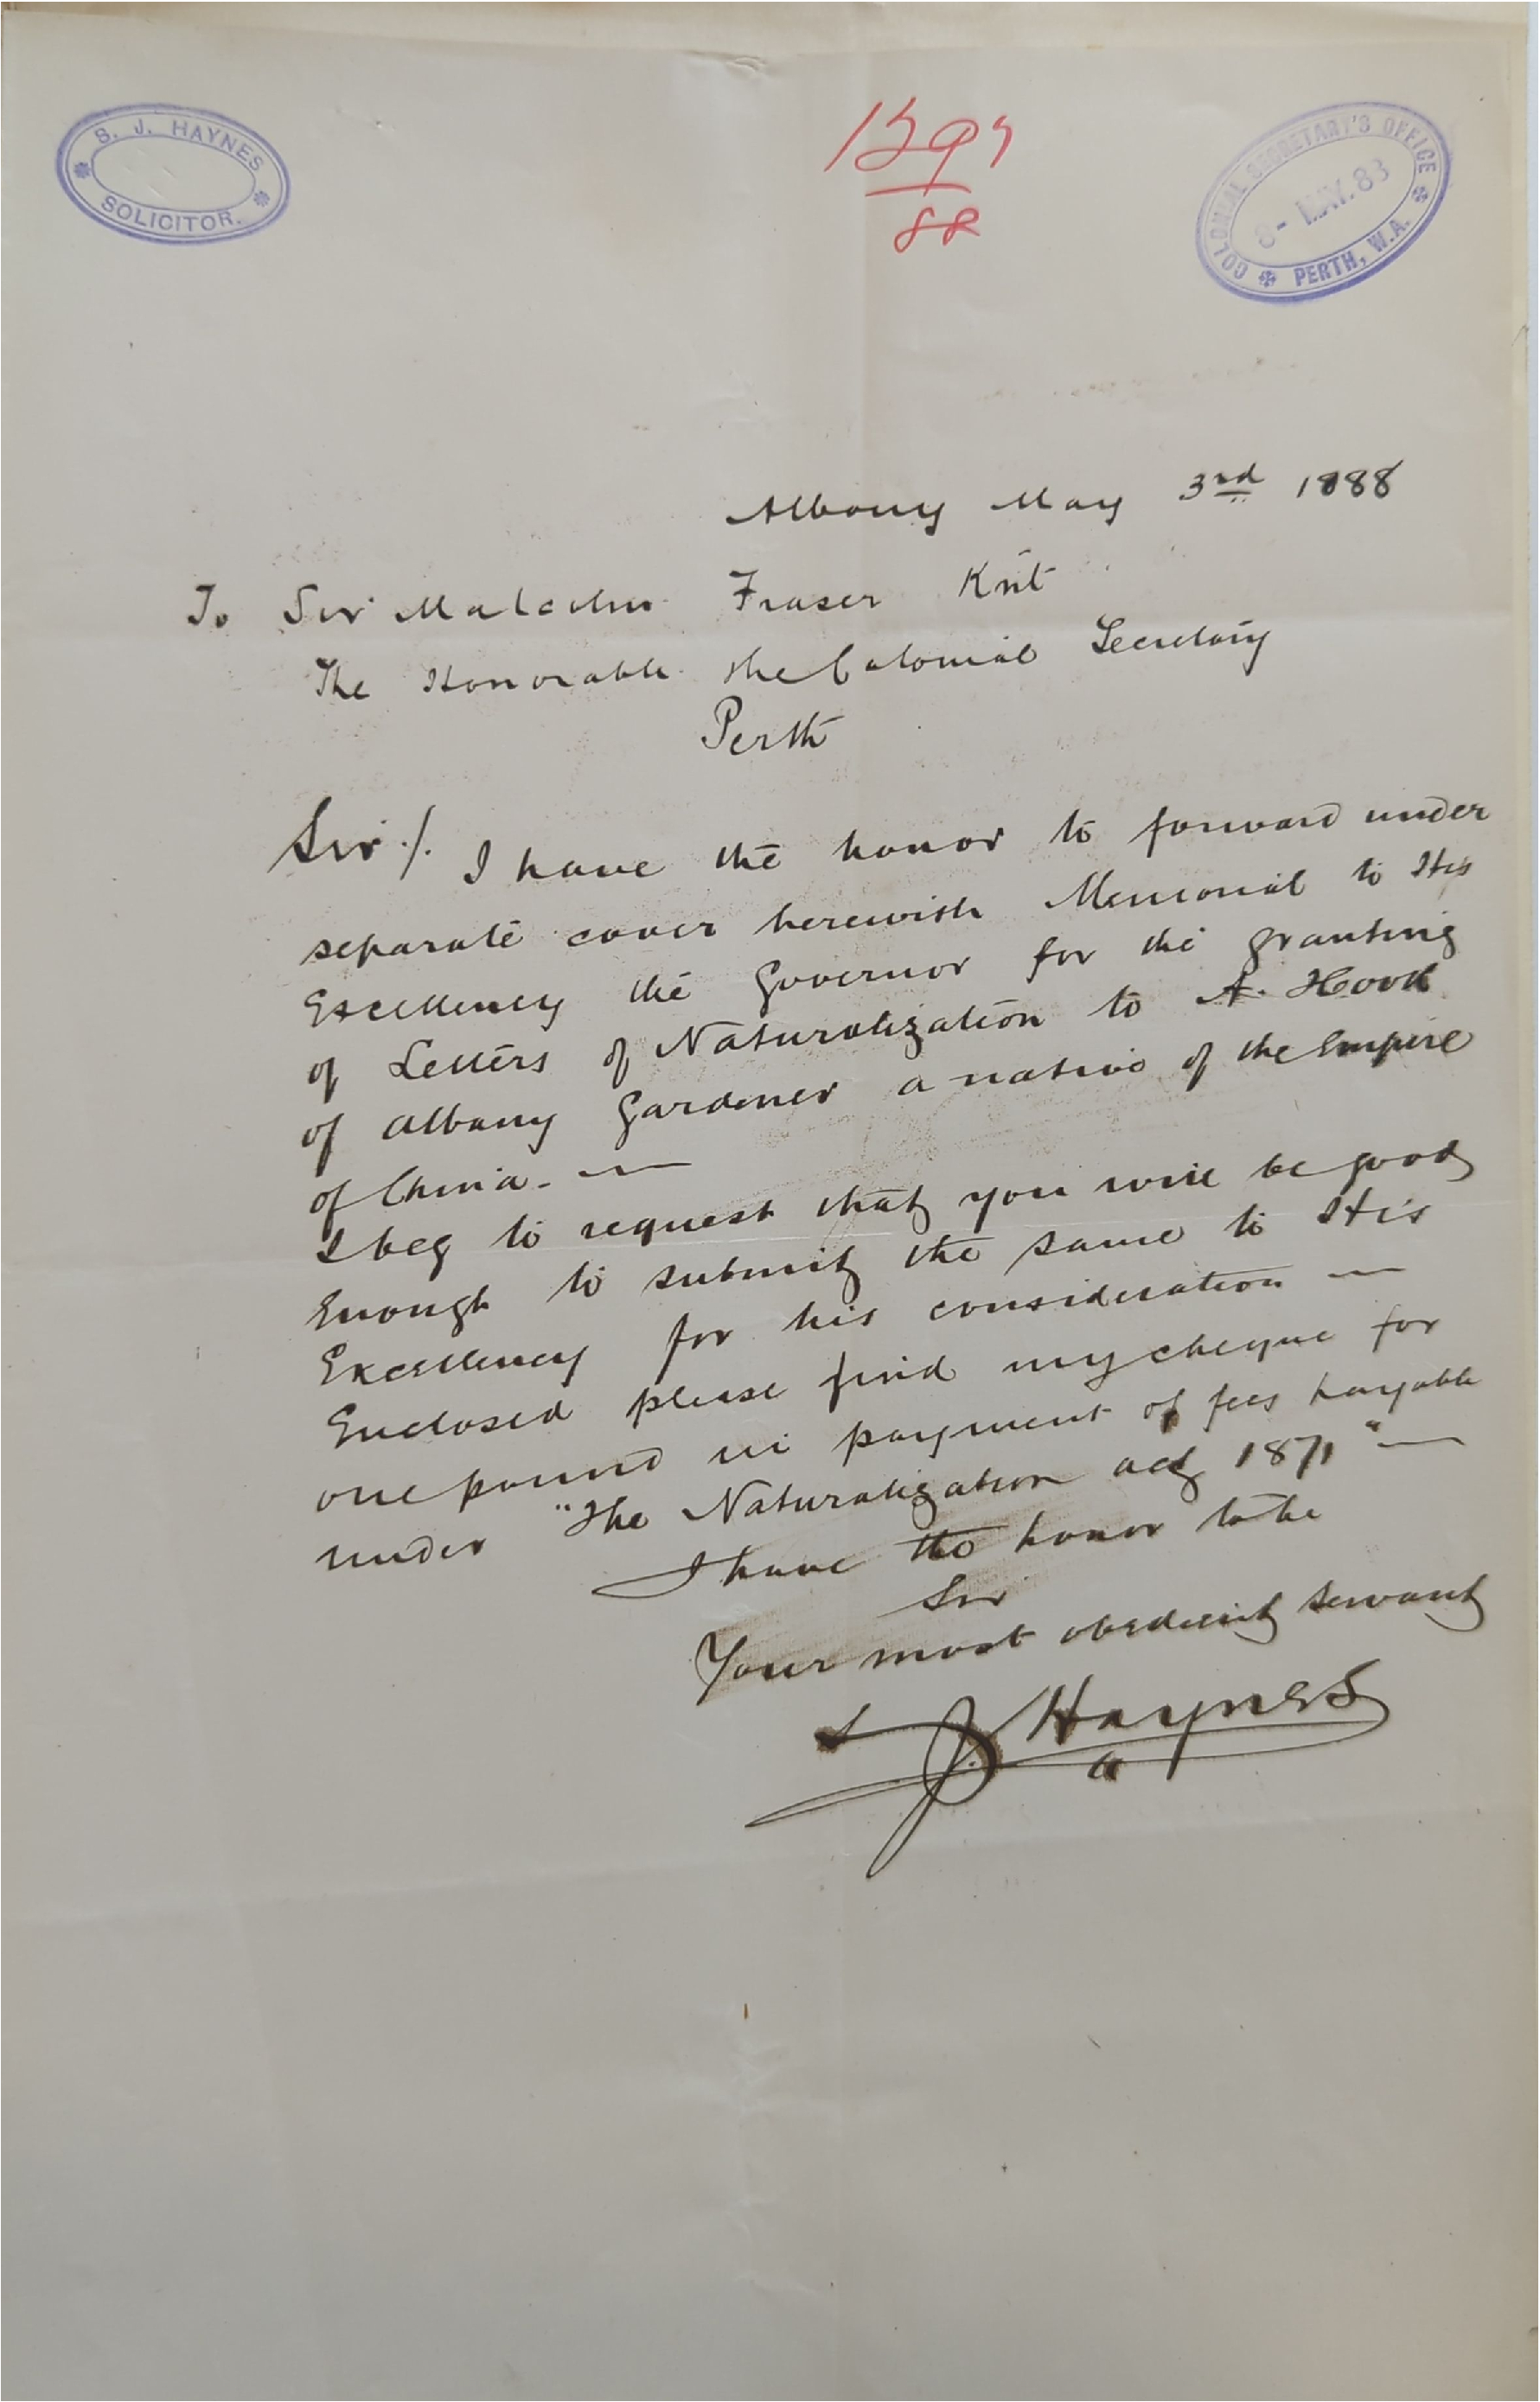 S. J. HAYNES
SOLICITOR.
88
COLONIAL SECRETARY'S OFFICE
8- MAY. 88
PERTH, W.A.
Albany May 3rd 1888
To Sir Malcolm Fraser Knt
The Honorable the Colonial Secretary
Perth
Sir/. I have the honor to forward under
separate cover herewith Memorial to His
Excellency the Governor for the granting
of Letters of Naturalization to A. Hook
of Albany Gardener a native of the Empire
of China. —
I beg to request that you will be good
Enough to submit the same to His
Excellency for his consideration —
Enclosed please find my cheque for
one pound in payment of fees payable
under "The Naturalization act 1871" —
I have the honor to be
Sir
Your most obedient servant
S J Haynes